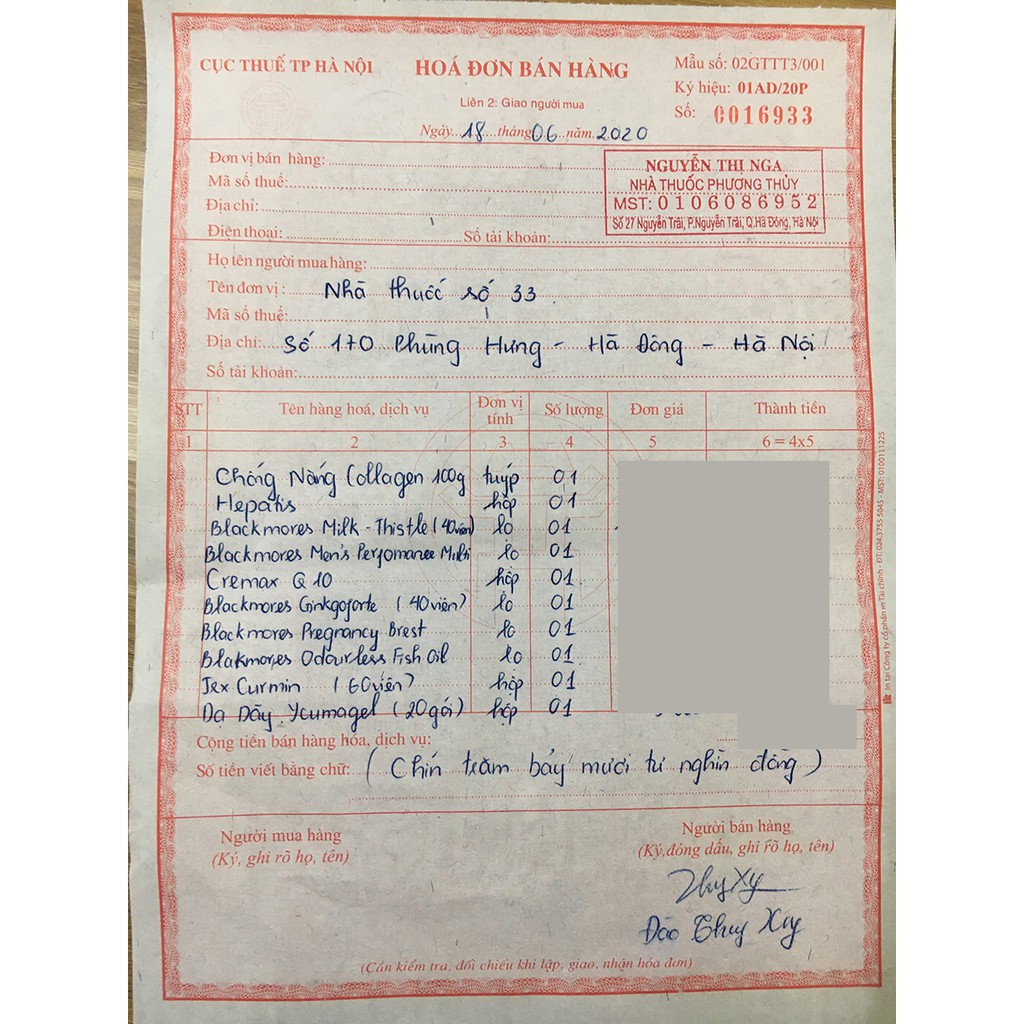 CỤC THUẾ TP HÀ NỘI
HOÁ ĐƠN BÁN HÀNG
Liên 2: Giao người mua
Ngày 18 tháng 06 năm 2020
Mẫu số: 02GTTT3/001
Ký hiệu: 01AD/20P
Số: 0016933
Đơn vị bán hàng:
Mã số thuế:
Địa chỉ:
Điện thoại: Số tài khoản:
NGUYỄN THỊ NGA
NHÀ THUỐC PHƯƠNG THỦY
MST: 0106086952
Số 27 Nguyễn Trãi, P.Nguyễn Trãi, Q.Hà Đông, Hà Nội
Họ tên người mua hàng:
Tên đơn vị: Nhà thuốc số 33
Mã số thuế:
Địa chỉ: Số 170 Phùng Hưng - Hà Đông - Hà Nội
Số tài khoản:
STT Tên hàng hoá, dịch vụ Đơn vị tính Số lượng Đơn giá Thành tiền
1 2 3 4 5 6 = 4x5
Chống Nắng Collagen 100g tuýp 01
Hepatis hộp 01
Blackmores Milk - Thistle (40 viên) lọ 01
Blackmores Men's Perfomance Multi lọ 01
Cremax Q10 hộp 01
Blackmores Ginkgoforte (40 viên) lọ 01
Blackmores Pregnancy Brest lọ 01
Blakmores Odourless Fish Oil lọ 01
Jex Curmin (60 viên) hộp 01
Dạ Dầy Yumagel (20 gói) hộp 01
Cộng tiền bán hàng hóa, dịch vụ:
Số tiền viết bằng chữ: (Chín trăm bảy mươi tư nghìn đồng)
Người mua hàng
(Ký, ghi rõ họ, tên)
Người bán hàng
(Ký, đóng dấu, ghi rõ họ, tên)
Đào Thuy Xuy
(Cần kiểm tra, đối chiếu khi lập, giao, nhận hóa đơn)
In tại Công ty cổ phần in Tài chính - ĐT: 024.3755 5045 - MST: 0100111225